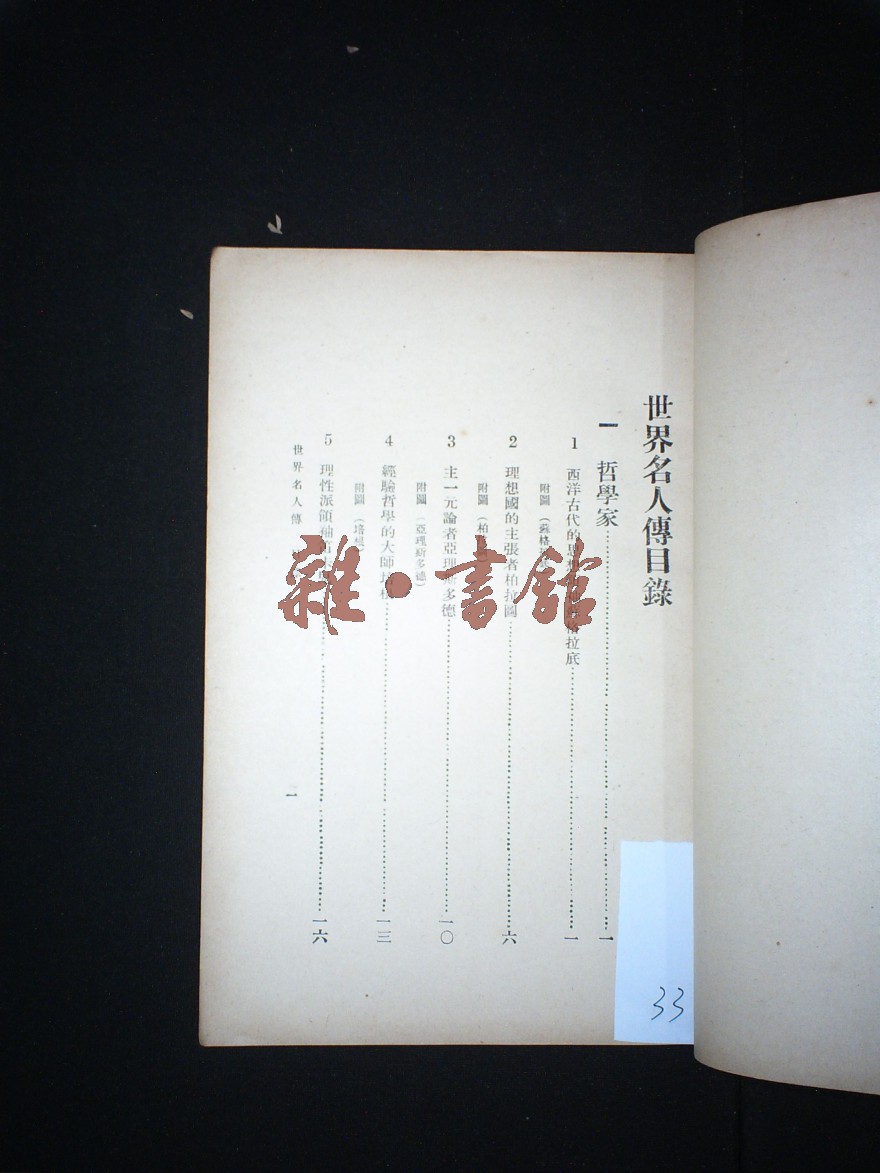 世界名人傳目錄
一 哲學家……一
1 西洋古代的思想 格拉底……一
附圖（蘇格
2 理想國的主張者柏拉圖……六
附圖（柏
3 主一元論者亞理斯多德……一〇
附圖（亞理斯多德）
4 經驗哲學的大師培根……一三
附圖（培根）
5 理性派領袖……一六
世界名人傳
一
雜·書館
33